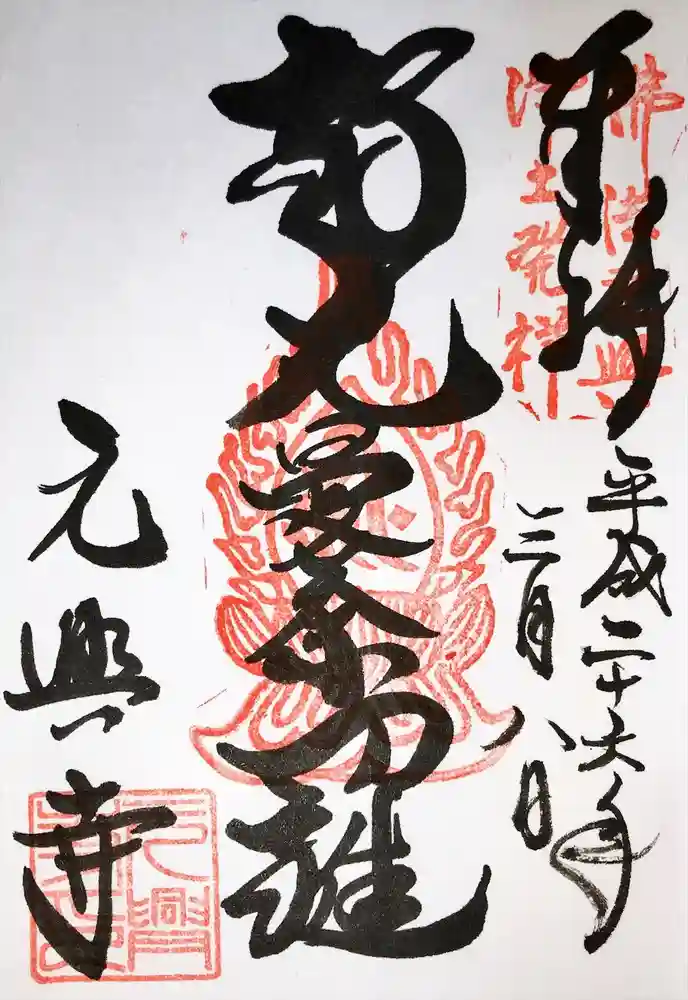 奉拝
佛法元興
浄土発祥
平成二十六年
三月八日
智光曼荼羅
元興寺